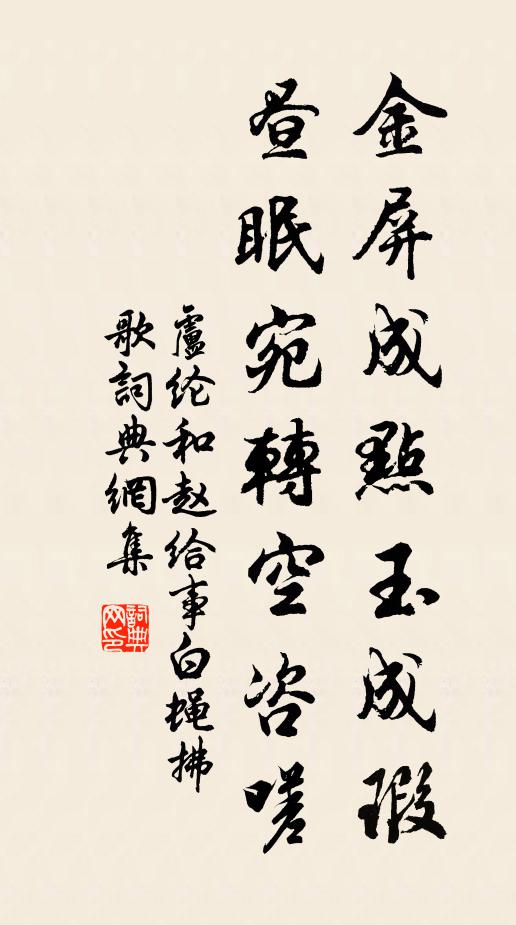 金屏成點玉成瑕
昼眠宛轉空咨嗟
盧纶和赵给事白蝇拂
歌詞典網集
詞典网印